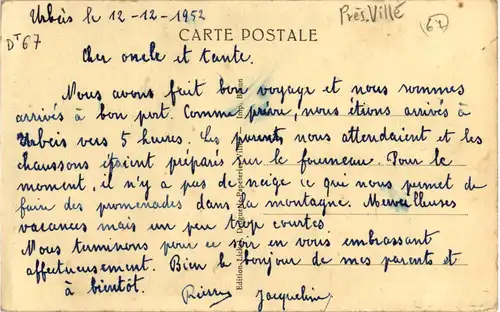 Urbeis le 12-12-1952
Près. Ville
67
DT 67
CARTE POSTALE
Cher oncle et tante.
Nous avons fait bon voyage et nous sommes
arrivés à bon port. Comme prévu, nous étions arrivés à
Urbeis vers 5 heures. Les parents nous attendaient et les
chaussons étaient préparés sur le fourneau. Pour le
moment, il n'y a pas de neige ce qui nous permet de
faire des promenades dans la montagne. Merveilleuses
vacances mais un peu trop courtes.
Nous terminons pour ce soir en vous embrassant
affectueusement. Bien le bonjour de mes parents et
à bientôt.
Pierre Jacqueline
Edition
Imp.